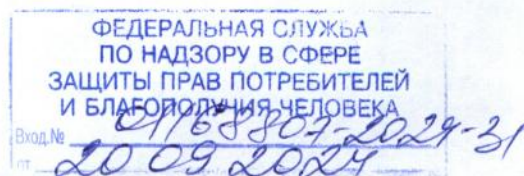 ФЕДЕРАЛЬНАЯ СЛУЖБА
ПО НАДЗОРУ В СФЕРЕ
ЗАЩИТЫ ПРАВ ПОТРЕБИТЕЛЕЙ
И БЛАГОПОЛУЧИЯ ЧЕЛОВЕКА
Вход.№ 01168807-2024-31
от 20 09 2024